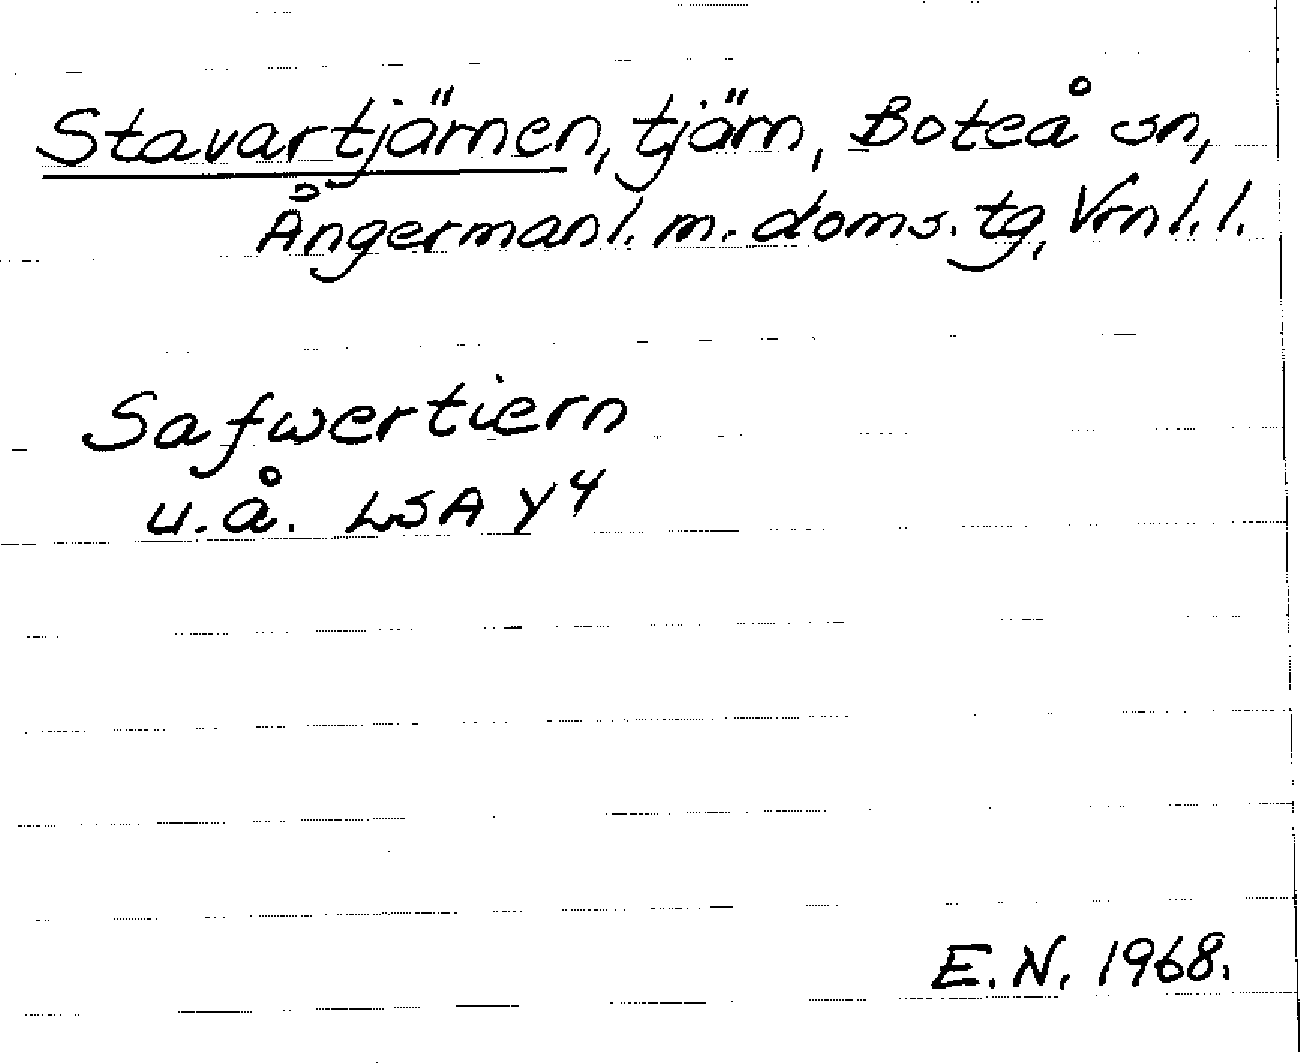 Stavartjärnen, tjärn, Boteå sn,
Ångermanl. m. doms. tg, Vrnl. l.
Safwertiern
u.å. LSA Y4
E.N. 1968.